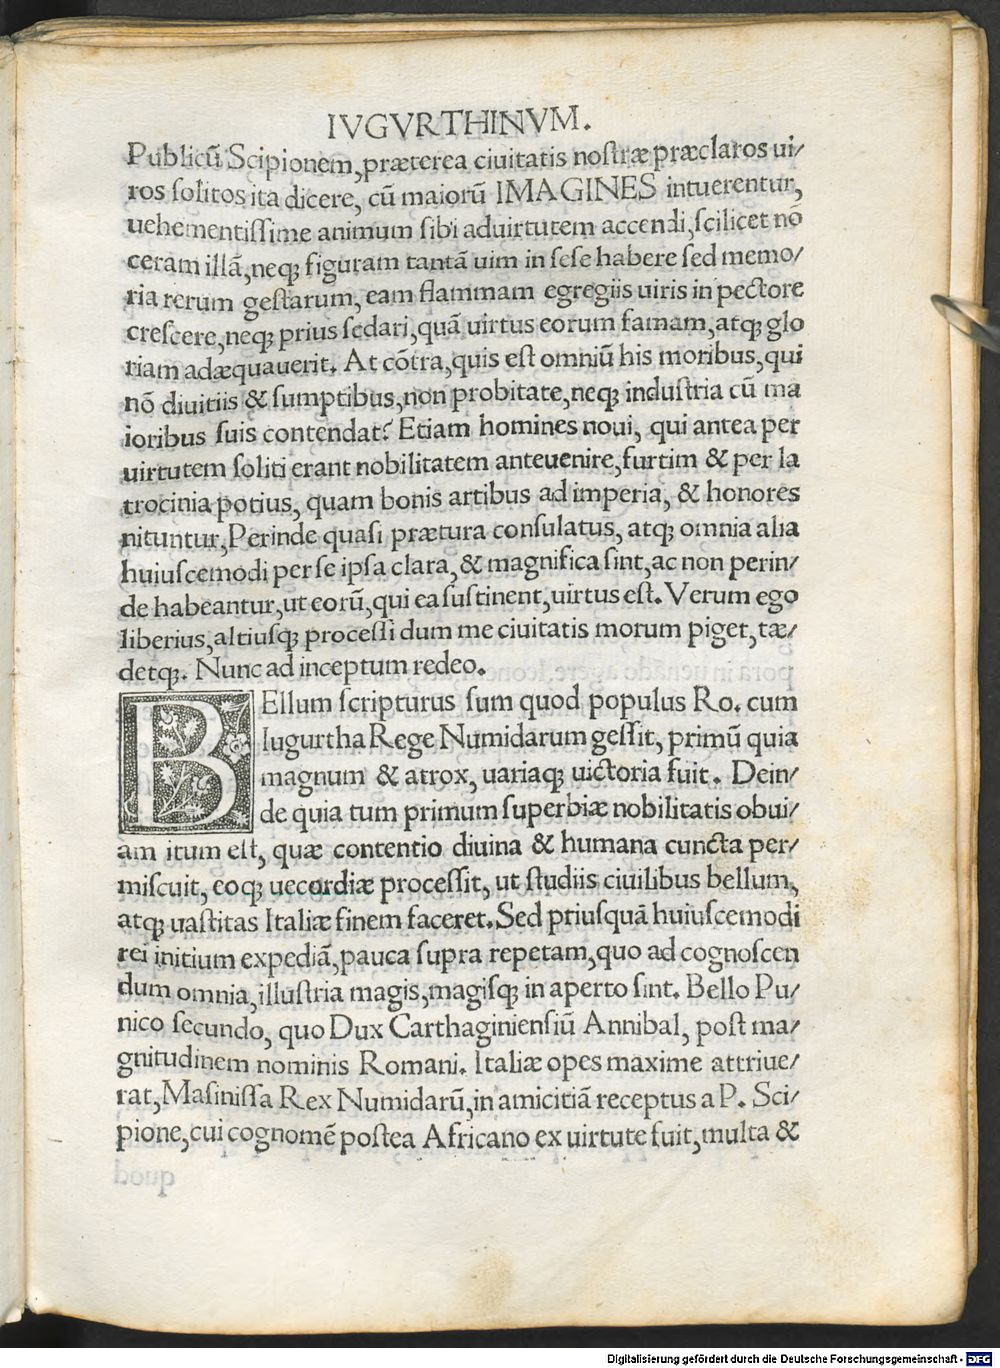 IVGVRTHINVM.
Publicũ Scipionem, præterea ciuitatis noſtræ præclaros ui/
ros ſolitos ita dicere, cũ maiorũ IMAGINES intuerentur,
uehementiſſime animum ſibi aduirtutem accendi, ſcilicet nõ
ceram illã, neqꝫ figuram tantã uim in ſeſe habere ſed memo/
ria rerum geſtarum, eam flammam egregiis uiris in pectore
creſcere, neqꝫ prius ſedari, quã uirtus eorum famam, atqꝫ glo
riam adæquauerit. At cõtra, quis eſt omniũ his moribus, qui
nõ diuitiis & ſumptibus, non probitate, neqꝫ induſtria cũ ma
ioribus ſuis contendat? Etiam homines noui, qui antea per
uirtutem ſoliti erant nobilitatem anteuenire, furtim & per la
trocinia potius, quam bonis artibus ad imperia, & honores
nituntur, Perinde quaſi prætura conſulatus, atqꝫ omnia alia
huiuſcemodi per ſe ipſa clara, & magnifica ſint, ac non perin/
de habeantur, ut eorũ, qui ea ſuſtinent, uirtus eſt. Verum ego
liberius, altiuſqꝫ proceſſi dum me ciuitatis morum piget, tæ/
detqꝫ. Nunc ad inceptum redeo.
BEllum ſcripturus ſum quod populus Ro. cum
Iugurtha Rege Numidarum geſſit, primũ quia
magnum & atrox, uariaqꝫ uictoria fuit. Dein/
de quia tum primum ſuperbiæ nobilitatis obui/
am itum eſt, quæ contentio diuina & humana cuncta per/
miſcuit, eoqꝫ uecordiæ proceſſit, ut ſtudiis ciuilibus bellum,
atqꝫ uaſtitas Italiæ finem faceret. Sed priuſquã huiuſcemodi
rei initium expediã, pauca ſupra repetam, quo ad cognoſcen
dum omnia, illuſtria magis, magiſqꝫ in aperto ſint. Bello Pu/
nico ſecundo, quo Dux Carthaginienſiũ Annibal, poſt ma/
gnitudinem nominis Romani. Italiæ opes maxime attriue/
rat, Maſiniſſa Rex Numidarũ, in amicitiã receptus a P. Sci/
pione, cui cognomẽ poſtea Africano ex uirtute fuit, multa &
Digitalisierung gefördert durch die Deutsche Forschungsgemeinschaft - DFG